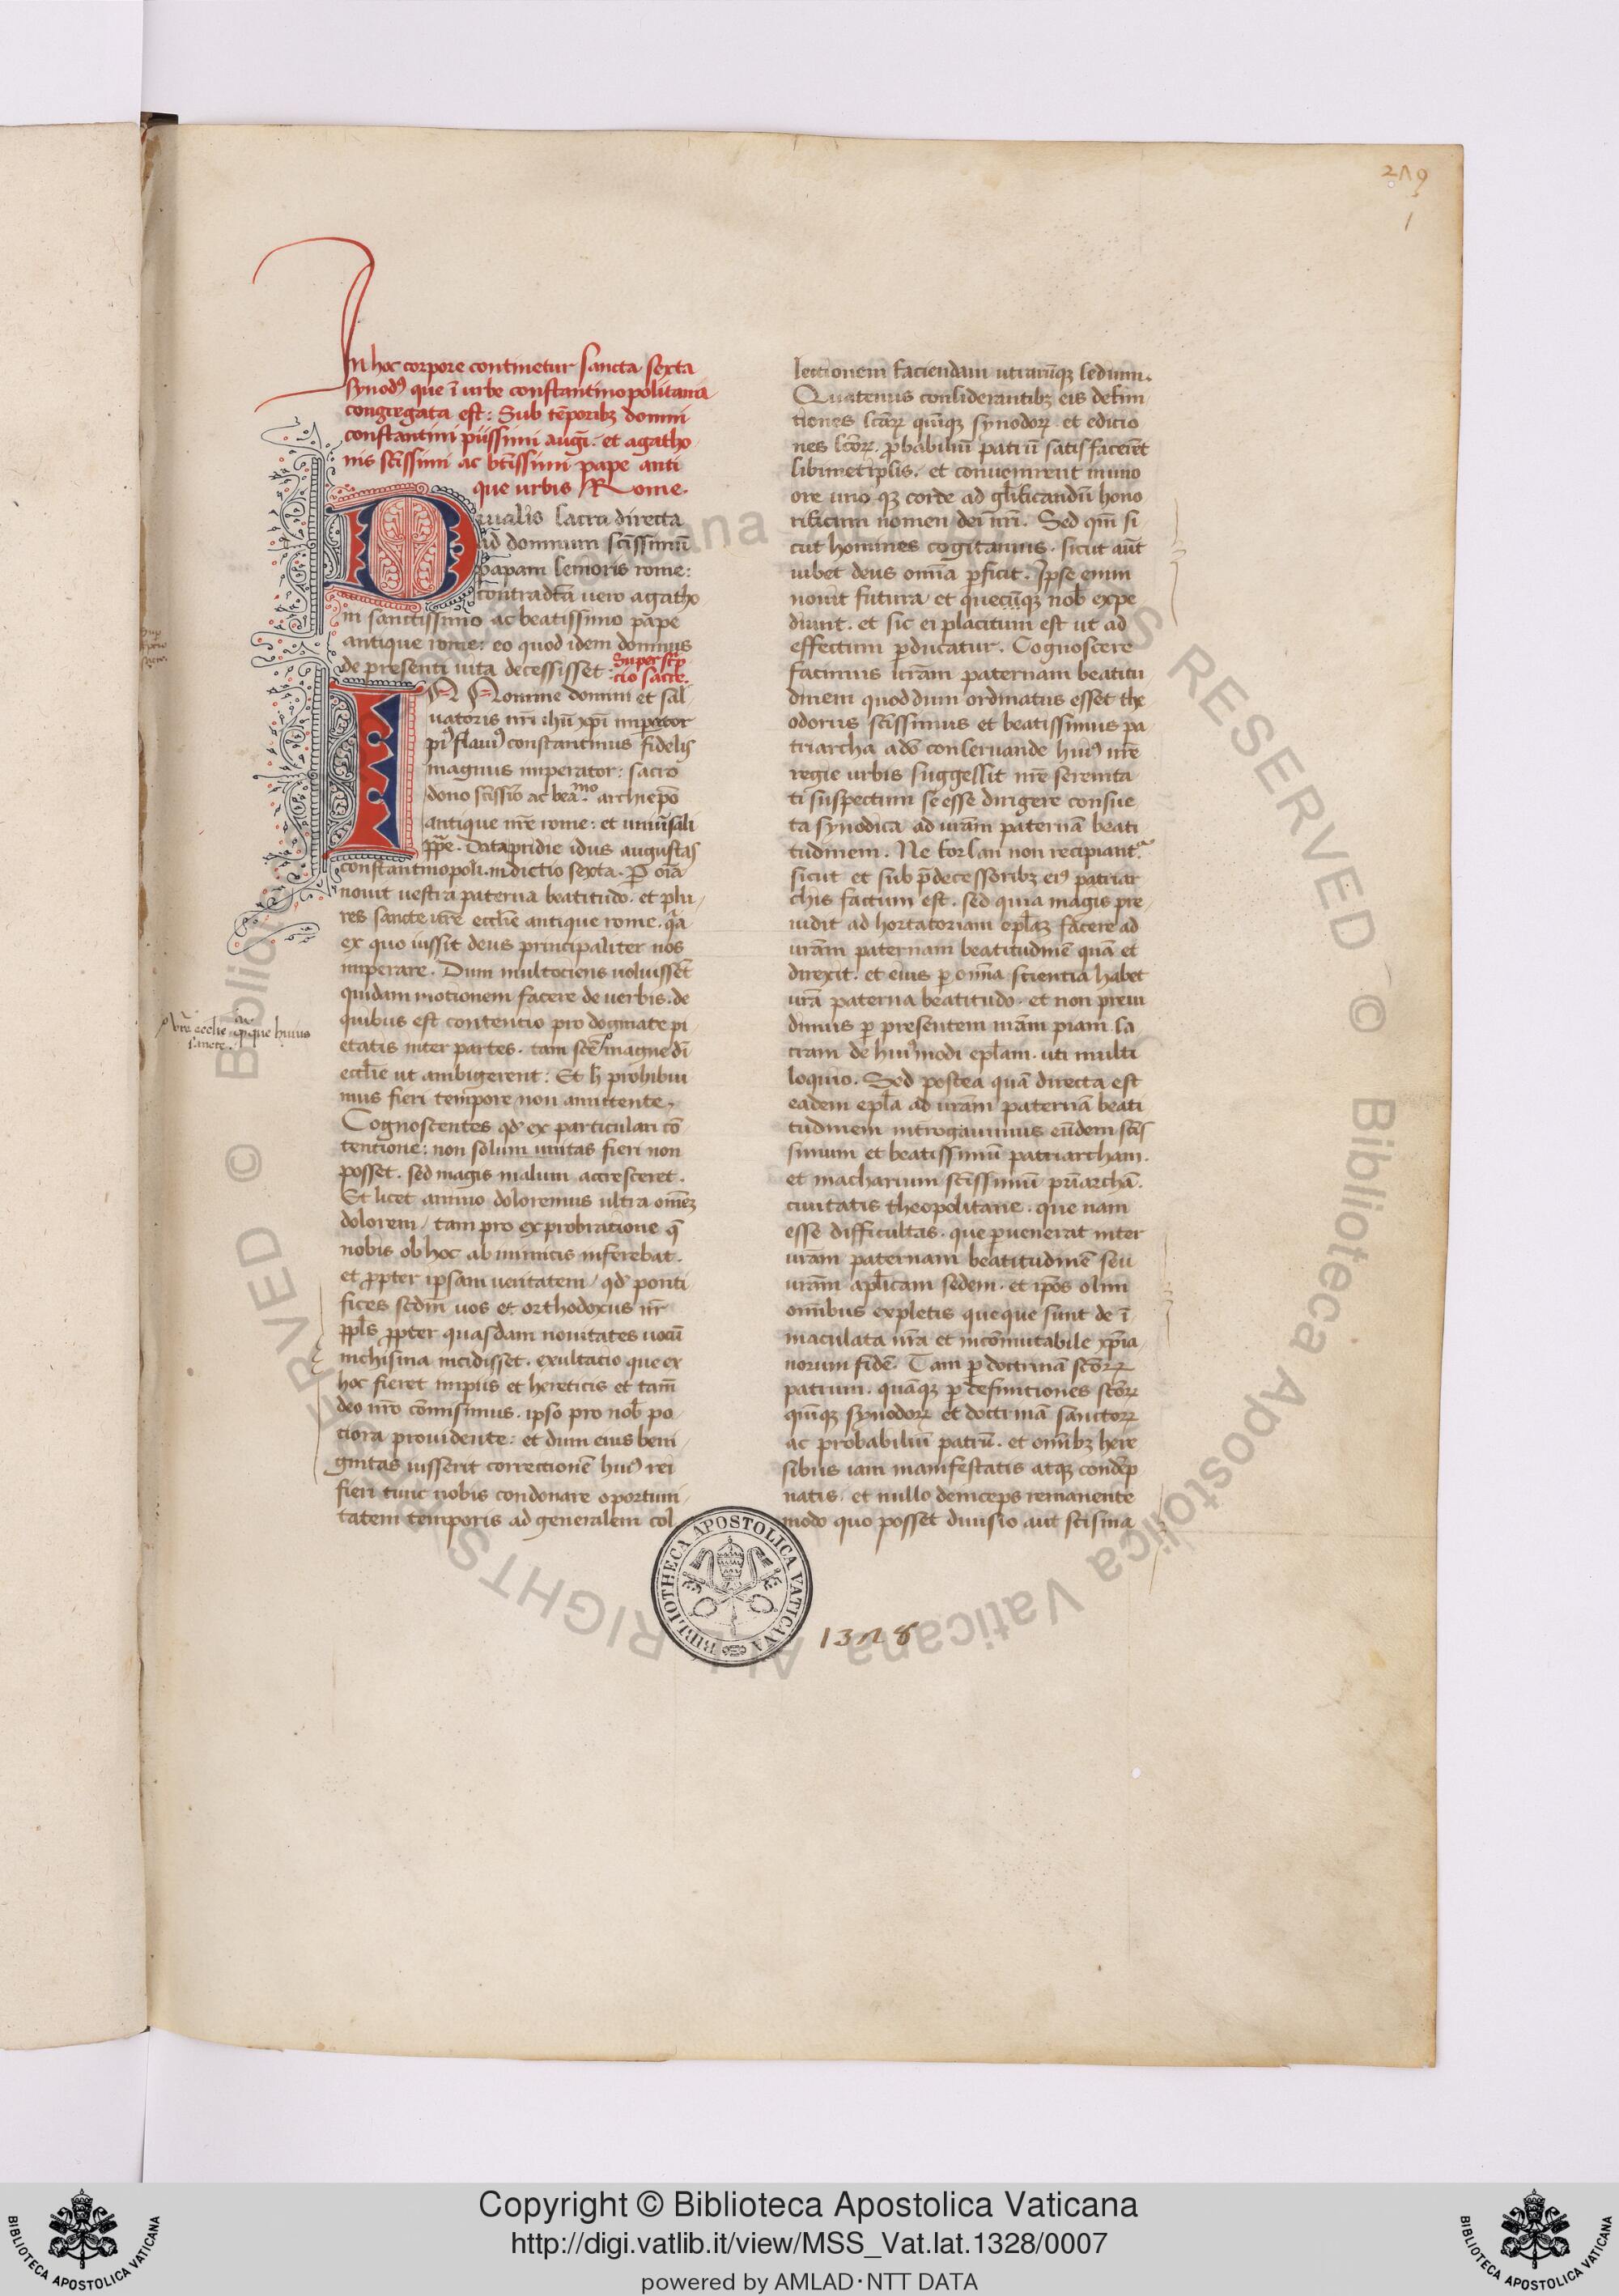 219
1
In hoc corpore continetur sancta sexta
synodꝰ que ī urbe constantinopolitana
congregata est: Sub tēporibꝫ domni
constantini piissimi aug̅. et agatho
nis sc̅issimi ac bt̅issimi pape anti
que urbis Rome.
Qualis sacra directa
ad domnum sc̅issimū
papam senioris rome:
contradt̅a uero agatho
ni sanctissimo ac beatissimo pape
antique rome: eo quod idem domnus
de presenti uita decessisset: Superscͥp
cio sacre.
IN Nomine domini et sal
uatoris nr̅i ihū xp̅i imperator
piꝰ flauiꝰ constantinus fidelis
magnus imperator: sacro
dono sc̅issīo ac bea.ᵐᵒ archiepō
antique nr̅e rome: et uniūsali
pp̅e. Data pridie idus augustas
constantinopoli. indictio sexta. P oīa
nouit uestra paterna beatitudo. et plu
res sancte ur̅e eccl̅ie antique rome. q̅a
ex quo iussit deus principaliter nos
imperare. Dum multociens uoluissēt
quidam motionem facere de uerbis. de
quibus est contentio pro dogmate pi
etatis inter partes. tam sc̅e magne dī
eccl̅ie ut ambigerent: Et h̅ prohibui
mus fieri tempore non amittente,
Cognoscentes qd̓ ex particulari cō
tentione: non solum unitas fieri non
posset. sed magis malum accresceret.
Et licet animo doloremus ultra omēꝫ
dolorem, tam pro exprobratione q̅
nobis ob hoc ab inimicis inferebat.
et ꝓpter ipsam ueritatem, qd̓ ponti
fices scdm̅ uos et orthodoxus nr̅
ppl̅s ꝓpter quasdam nouitates uocū
in chisma incidisset. exultatio que ex
hoc fieret impiis et hereticis et tam̅
deo nr̅o cōmisimus. ipso pro nob̅ po
ciora prouidente: et dum eius beni
gnitas iusserit correctionē huiꝰ rei
fieri tunc nobis condonare oportuni
tatem temporis ad generalem col
ur̅e eccl̅ie
que huius
sancte.
lectionem faciendam utrarūqꝫ sedium.
Quatenus considerantibꝫ eis defini
tiones sc̅arꝝ quīqꝫ synodorꝝ. et editio
nes sc̅orꝝ. ꝓbabiliū patrū satisfacerēt
sibimetip̅lis. et conuenirent in uno
ore uno qꝫ corde ad gl̅ificandū hono
rificum nomen dei nr̅i. Sed qm̅ si
cut homines cogitamus. sicut aūt
iubet deus omīa ꝑficit. Ipse enim
nouit futura et quecūqꝫ nob̅ expe
diunt. et sic ei placitum est ut ad
effectum ꝑducatur. Cognoscere
facimus ur̅am paternam beatitu
dinem quod dum ordinatus esset the
odorus sc̅issimus et beatissimus pa
triarcha adô conseruande huiꝰ nr̅e
regie urbis suggessit nr̅e serenita
ti suspectum se esse dirigere consue
ta synodica ad ur̅am paternā beati
tudinem. Ne forsan non recipiant.ᵃ
sicut et sub p̅decessoribꝫ eiꝰ patriar
chis factum est. sed quia magis pre
uidit ad hortatoriam epl̅aꝫ facere ad
ur̅am paternam beatitudinē quā et
direxit. et eius ꝑ omīa scientiā habet
ur̅a paterna beatitudo. et non preui
dimus ꝑ presentem nr̅am piam sa
cram de huiꝰmodi epl̅am. uti multi
loquio. Sed postea quā directa est
eadem epl̅a ad ur̅am paternā beati
tudinem introgauimus eūdem sc̅is
simum et beatissimū patriarcham.
et macharium sc̅issimū pr̅iarchā.
ciuitatis theopolitane. que nam
esse difficultas. que ꝑuenerat inter
ur̅am paternam beatitudinē seu
ur̅am apl̅icam sedem. et ip̅os olim
omībus expletis queque sunt de ī
maculata nr̅a et incōmutabile xp̅ia
norum fidē. Tam ꝑ doctrinā sc̅orꝝ
patrum. quāqꝫ ꝑ definitiones sc̅orꝝ
quīqꝫ synodorꝝ et doctrinā sanctorꝝ
ac probabiliū patrū. et omībꝫ here
sibus iam manifestatis atqꝫ condēp
natis. et nullo deinceps remanente
modo quo posset diuisio aut scisma
BIBLIOTHECA APOSTOLICA VATICANA
1328
© Biblioteca Apostolica Vaticana ALL RIGHTS RESERVED
Copyright © Biblioteca Apostolica Vaticana
http://digi.vatlib.it/view/MSS_Vat.lat.1328/0007
powered by AMLAD·NTT DATA
BIBLIOTECA APOSTOLICA VATICANA
BIBLIOTECA APOSTOLICA VATICANA